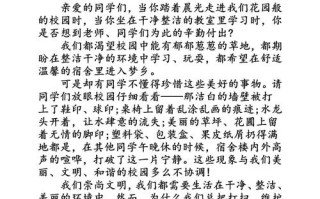 亲爱的同学们，当你踏着晨光走进我们花园般
的校园时，当你坐在干净整洁的教室里学习时，你
是否想到老师、同学们为此的辛勤付出？
我们都渴望校园中能有郁郁葱葱的草地，都期
盼在整洁干净的环境中学习、玩耍，都希望在舒适
温馨的宿舍里进入梦乡。
可是却有同学不懂得珍惜这些美好的事物。请
同学们放眼校园仔细看看——那洁白的墙壁被打
上了鞋印、球印；桌椅上留着乱涂乱画的痕迹；水龙
头开着，让水肆意的流走；美丽的草坪、花圃上留
着无情的脚印；塑料袋、包装盒、果皮纸屑扔得满
地都是，在其他同学午晚休的时候，宿舍楼内外高
声的喧哗，打破了这一片宁静。这些现象与我们美
丽、文明、和谐的校园多么不协调！
我们崇尚文明，我们都需要生活在干净、整洁、